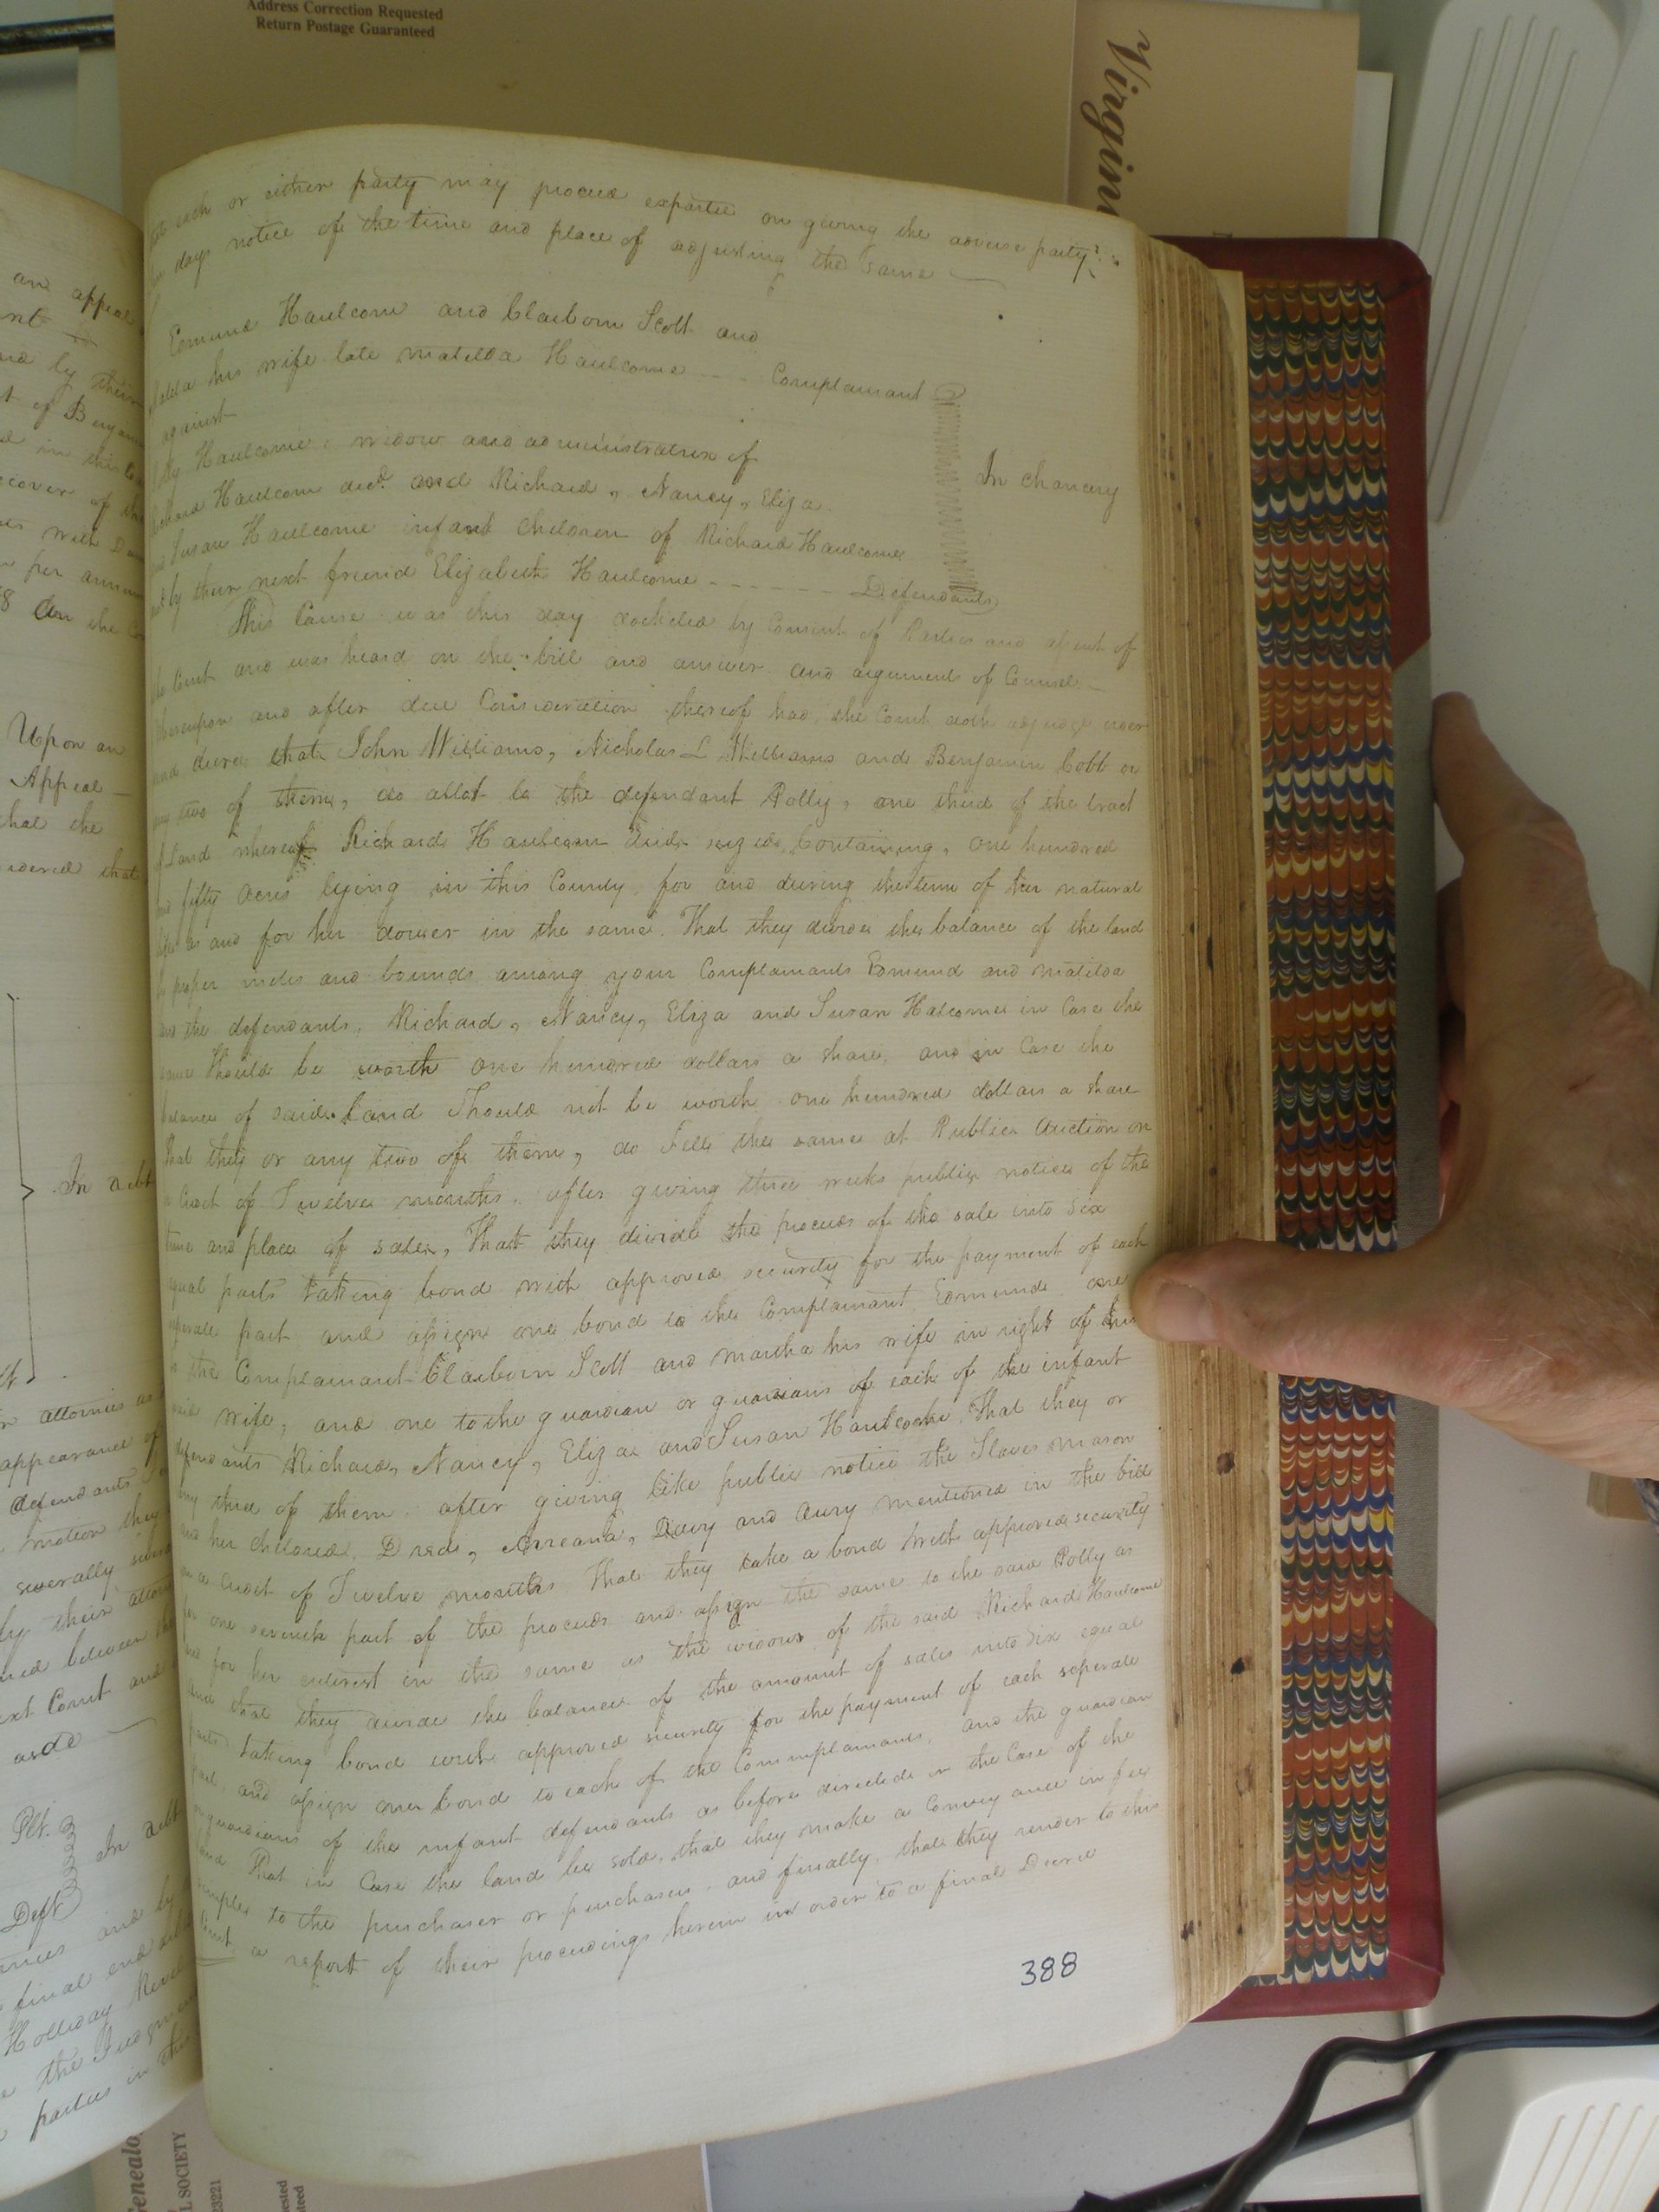 Address Correction Requested
Return Postage Guaranteed
Virgin
each or either party may proceed exparte on giving the adverse party
days notice of the time and place of adjusting the same
Edmund Haulcom and Claiborn Scott and
his wife late Matilda Haulcome Complainant
against
Haulcome widow and administratrix of
Richard Haulcom decd. and Richard, Nancy, Eliza
Susan Haulcome infant Children of Richard Haulcome
by their next friend Elizabeth Haulcome Defendants
In chancery
This Cause was this day docketed by Consent of Parties and of
Court and was heard on the bill and answer and arguments of Counsel
Whereupon and after due Consideration thereof had, the Court doth adjudge order
and decree that John Williams, Nicholas L Williams and Benjamin Cobb or
any two of them, do allot to the defendant Polly, one third of the tract
of Land whereof Richard Haulcom died seized, Containing, one hundred
and fifty acres lying in this County for and during the term of her natural
life as and for her dower in the same. That they divide the balance of the land
by proper metes and bounds among your Complainants Edmund and Matilda
and the defendants, Richard, Nancy, Eliza and Susan Halcome in Case the
same should be worth one hundred dollars a share, and in Case the
balance of said Land Should not be worth one hundred dollars a share
that they or any two of them, do Sell the same at Public Auction on
a Credit of Twelve months, after giving three weeks public notice of the
time and place of sale, That they divide the proceeds of the sale into six
equal parts taking bond with approved security for the payment of each
seperate part and assign one bond to the Complainant, Edmund one
to the Complainant Claiborn Scott and Martha his wife in right of his
said wife, and one to the guardian or guardians of each of the infant
defendants Richard, Nancy, Eliza and Susan Haulcome, That they or
any three of them after giving like public notice the Slaves Mason
and her children, Dred, Davy and mentioned in the bill
on a Credit of Twelve months That they take a bond with approved security
for one seventh part of the proceeds and assign the same to the said Polly as
and for her interest in the same as the widow of the said Richard Haulcome
and that they divide the balance of the amount of sales into six equal
parts taking bond with approved security for the payment of each seperate
part, and assign one bond to each of the Complainants, and the guardian
or guardians of the infant defendants as before directed in the Case of the
land That in Case the land be sold, that they make a Conveyance in fee
simple to the purchaser or purchasers, and finally, that they render to this
Court a report of their proceedings herein in order to a final Decree
388
an appeal
by their
of
in this
recover of
with
per annum
8 on the
Upon an
Appeal
that the
ordered that
In debt
attornies
appearance of
defendants
motion they
severally
by their
between
next Court and
aside
Plt.
In debt
Deft
and by
final and
Holliday
the Judgment
parties in this
Genealo
L SOCIETY
23221